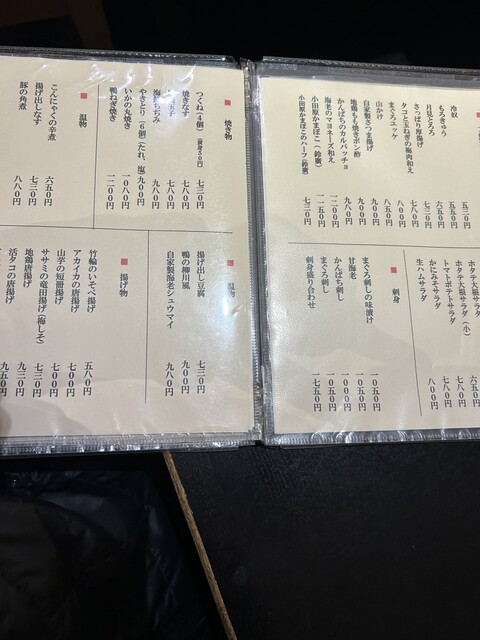 冷奴 五三〇円
もろきゅう 五五〇円
月見とろろ 六五〇円
さっぱり厚揚げ 七三〇円
タコと玉ねぎの梅肉和え 九八〇円
まぐろユッケ
山かけ 八五〇円
自家製さつま揚げ 九〇〇円
地鶏もも焼きポン酢 九〇〇円
かんぱちのカルパッチョ 九八〇円
海老のマヨネーズ和え 一二〇〇円
小田原かまぼこ(鈴廣) 一一五〇円
小田原かまぼこのハーフ(鈴廣) 七三〇円
ホタテ大根サラダ 
ホタテ大根サラダ(小) 六五〇円
トマトポテトサラダ 七八〇円
かにみそサラダ 七八〇円
生ハムサラダ 八〇〇円
刺身
まぐろ刺しの味漬け 一〇五〇円
甘海老 一〇五〇円
かんぱち刺し 一〇〇〇円
まぐろ刺し 一〇五〇円
刺身盛り合わせ 一七五〇円
焼き物
つくね(4個) 七三〇円
焼きなす 七八〇円
海鮮ちぢみ 九〇〇円
やきとり(6個)(たれ、塩) 九〇〇円
いかの丸焼き 一〇八〇円
鴨ねぎ焼き 一二〇〇円
温物
こんにゃくの辛煮 六五〇円
揚げ出しなす 七三〇円
豚の角煮 八八〇円
温物
揚げ出し豆腐 七三〇円
鴨の柳川風 九〇〇円
自家製海老シュウマイ 九八〇円
揚げ物
竹輪のいそべ揚げ 五八〇円
アカイカの唐揚げ 七〇〇円
山芋の短冊揚げ 七〇〇円
ササミの竜田揚げ(梅しそ) 七三〇円
地鶏唐揚げ 九三〇円
活タコの唐揚げ 九五〇円